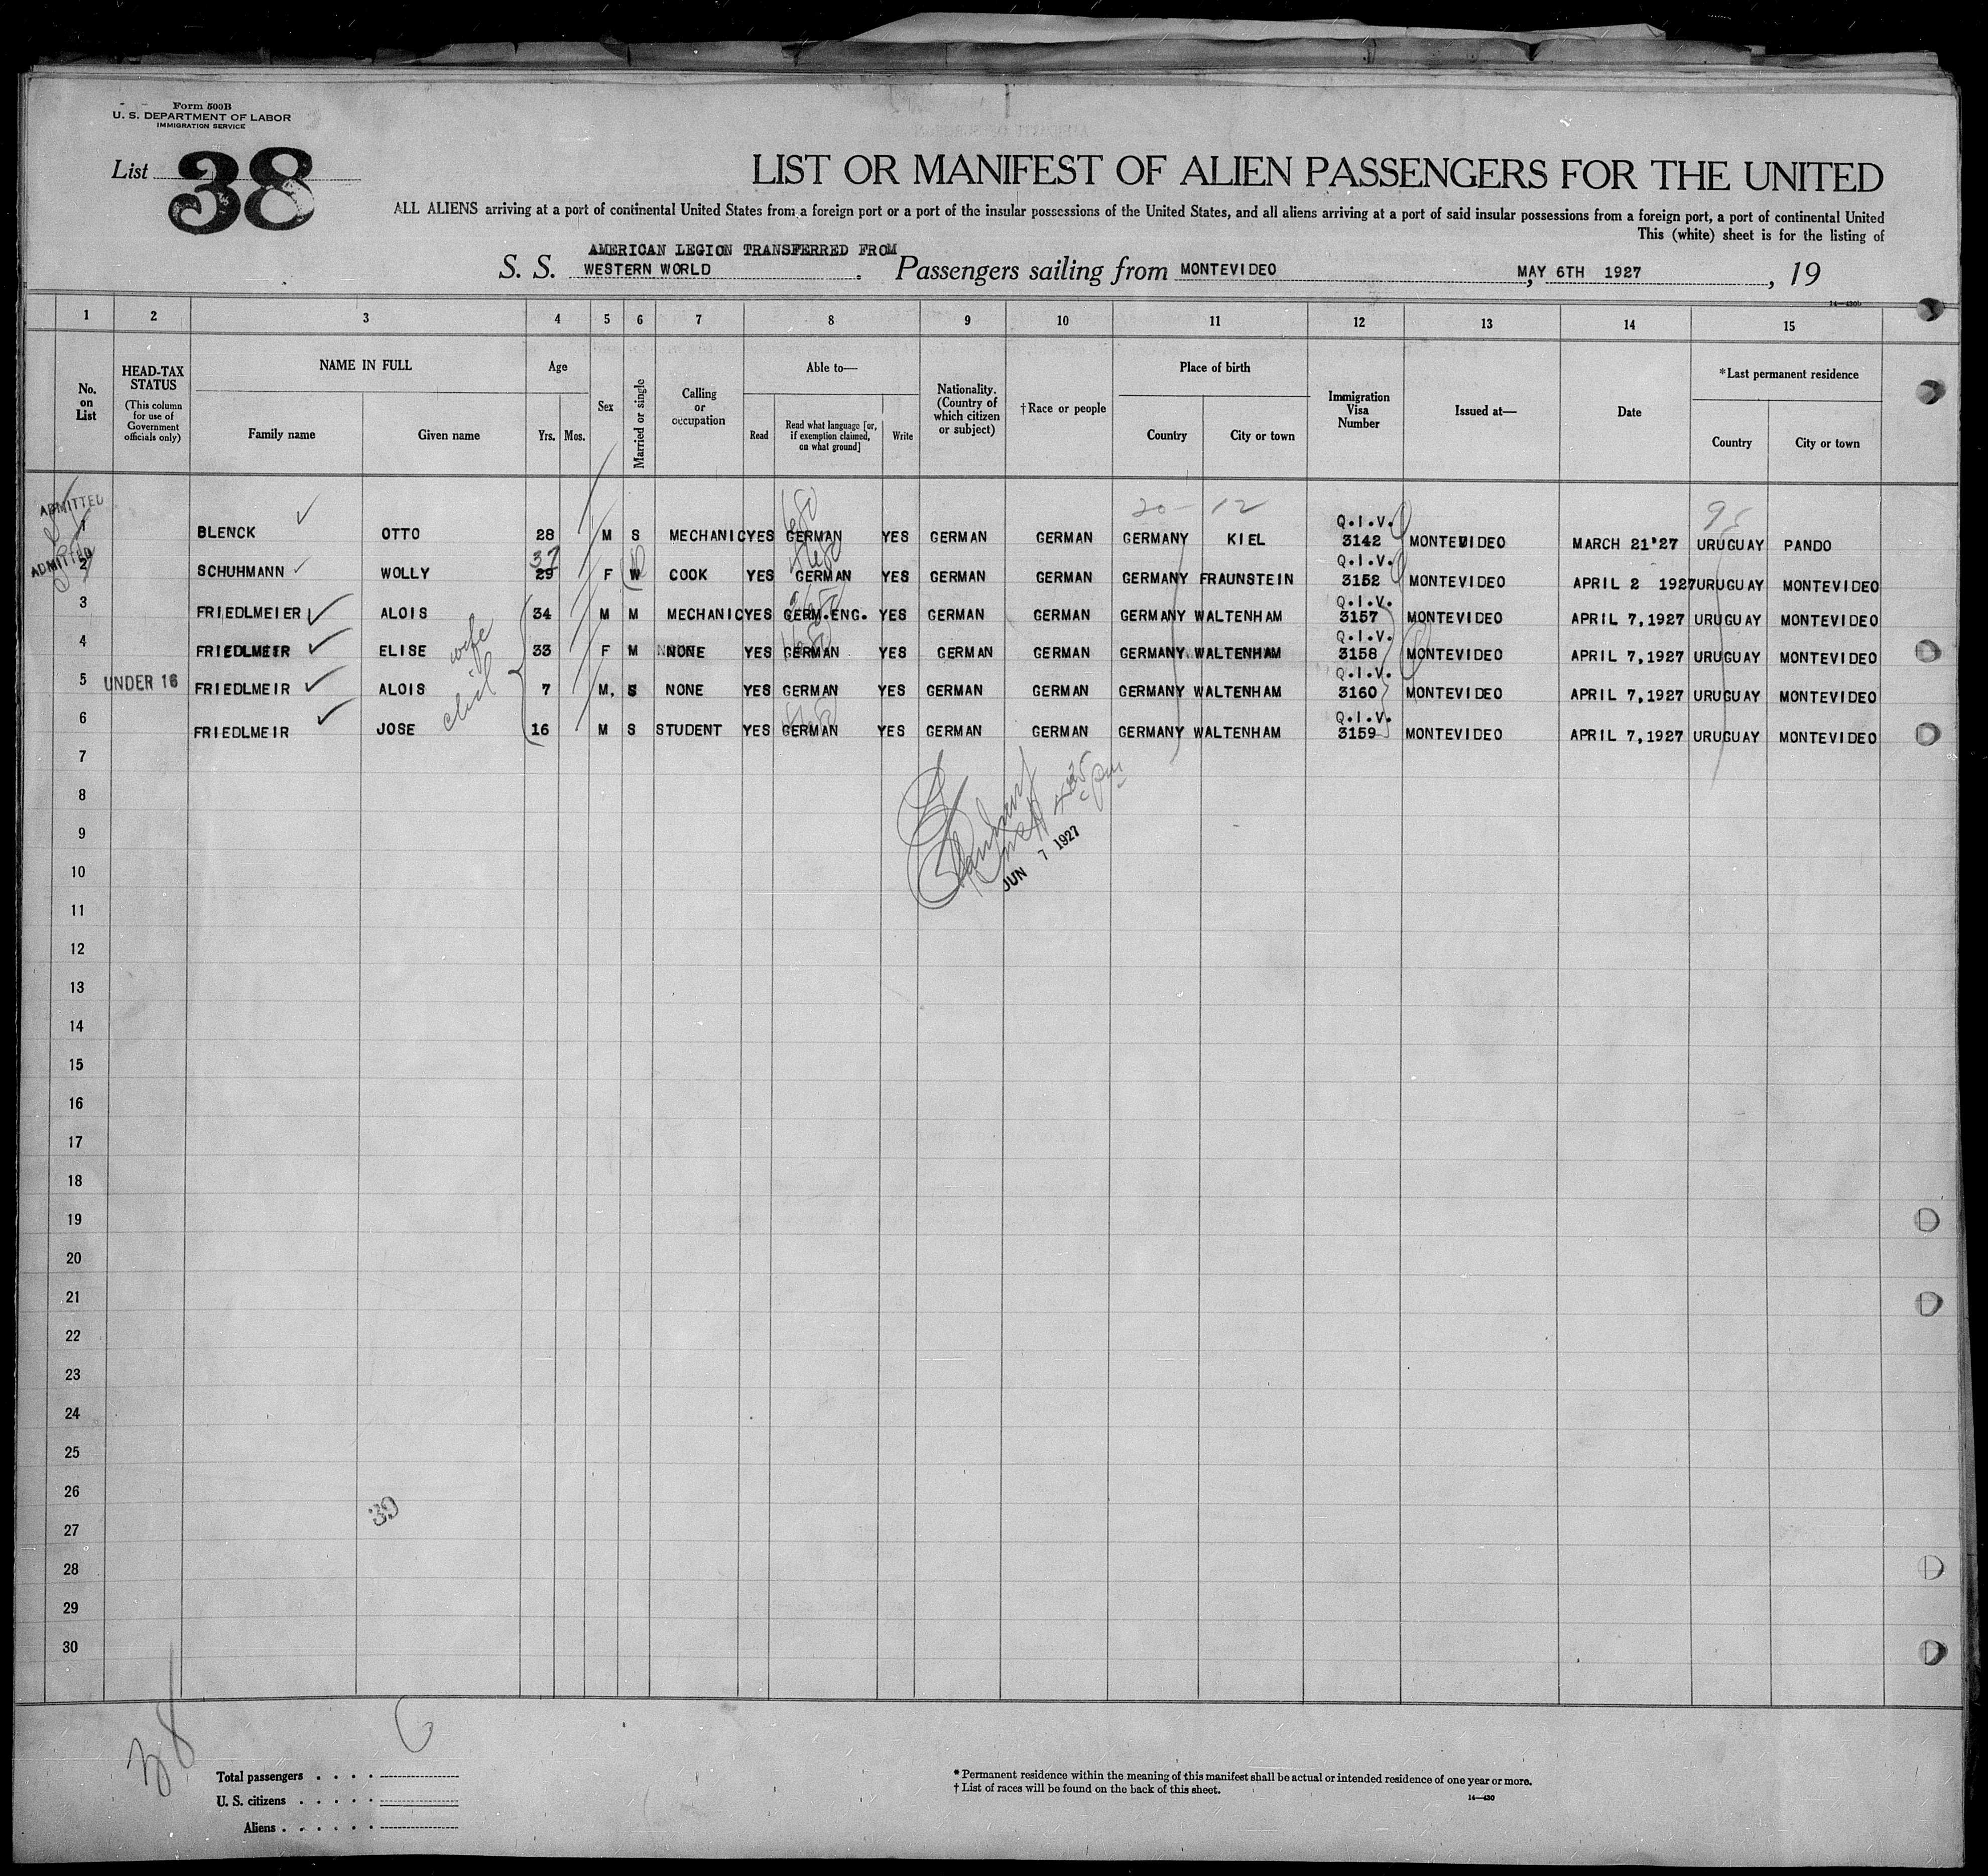 Form 500B
U. S. DEPARTMENT OF LABOR
IMMIGRATION SERVICE
List 38
LIST OR MANIFEST OF ALIEN PASSENGERS FOR THE UNITED
ALL ALIENS arriving at a port of continental United States from a foreign port or a port of the insular possessions of the United States, and all aliens arriving at a port of said insular possessions from a foreign port, a port of continental United
This (white) sheet is for the listing of
AMERICAN LEGION TRANSFERRED FROM
S. S. WESTERN WORLD . Passengers sailing from MONTEVIDEO , MAY 6TH 1927 , 19
14—430b
1 2 3 4 5 6 7 8 9 10 11 12 13 14 15
No. on List
HEAD-TAX STATUS
(This column for use of Government officials only)
NAME IN FULL
Family name Given name
Age
Yrs. Mos.
Sex
Married or single
Calling or occupation
Able to—
Read
Read what language [or, if exemption claimed, on what ground]
Write
Nationality. (Country of which citizen or subject)
† Race or people
Place of birth
Country City or town
Immigration Visa Number
Issued at—
Date
* Last permanent residence
Country City or town
ADMITTED 20 - 12
1 BLENCK OTTO 28 M S MECHANIC YES GERMAN YES GERMAN GERMAN GERMANY KIEL Q.I.V. 3142 MONTEVIDEO MARCH 21'27 URUGUAY PANDO
ADMITTED 37
2 SCHUHMANN WOLLY 29 F W COOK YES GERMAN YES GERMAN GERMAN GERMANY FRAUNSTEIN Q.I.V. 3152 MONTEVIDEO APRIL 2 1927 URUGUAY MONTEVIDEO
3 FRIEDLMEIER ALOIS 34 M M MECHANIC YES GERM.ENG. YES GERMAN GERMAN GERMANY WALTENHAM Q.I.V. 3157 MONTEVIDEO APRIL 7,1927 URUGUAY MONTEVIDEO
4 FRIEDLMEIR ELISE wife 33 F M NONE YES GERMAN YES GERMAN GERMAN GERMANY WALTENHAM Q.I.V. 3158 MONTEVIDEO APRIL 7,1927 URUGUAY MONTEVIDEO
5 UNDER 16 FRIEDLMEIR ALOIS 7 M, S NONE YES GERMAN YES GERMAN GERMAN GERMANY WALTENHAM Q.I.V. 3160 MONTEVIDEO APRIL 7,1927 URUGUAY MONTEVIDEO
6 FRIEDLMEIR JOSE 16 M S STUDENT YES GERMAN YES GERMAN GERMAN GERMANY WALTENHAM Q.I.V. 3159 MONTEVIDEO APRIL 7,1927 URUGUAY MONTEVIDEO
7
8
9
JUN 7 1927
10
11
12
13
14
15
16
17
18
19
20
21
22
23
24
25
26
39
27
28
29
30
38
6
Total passengers . . . .
U. S. citizens . . . . .
Aliens . . . . . .
* Permanent residence within the meaning of this manifest shall be actual or intended residence of one year or more.
† List of races will be found on the back of this sheet.
14—430